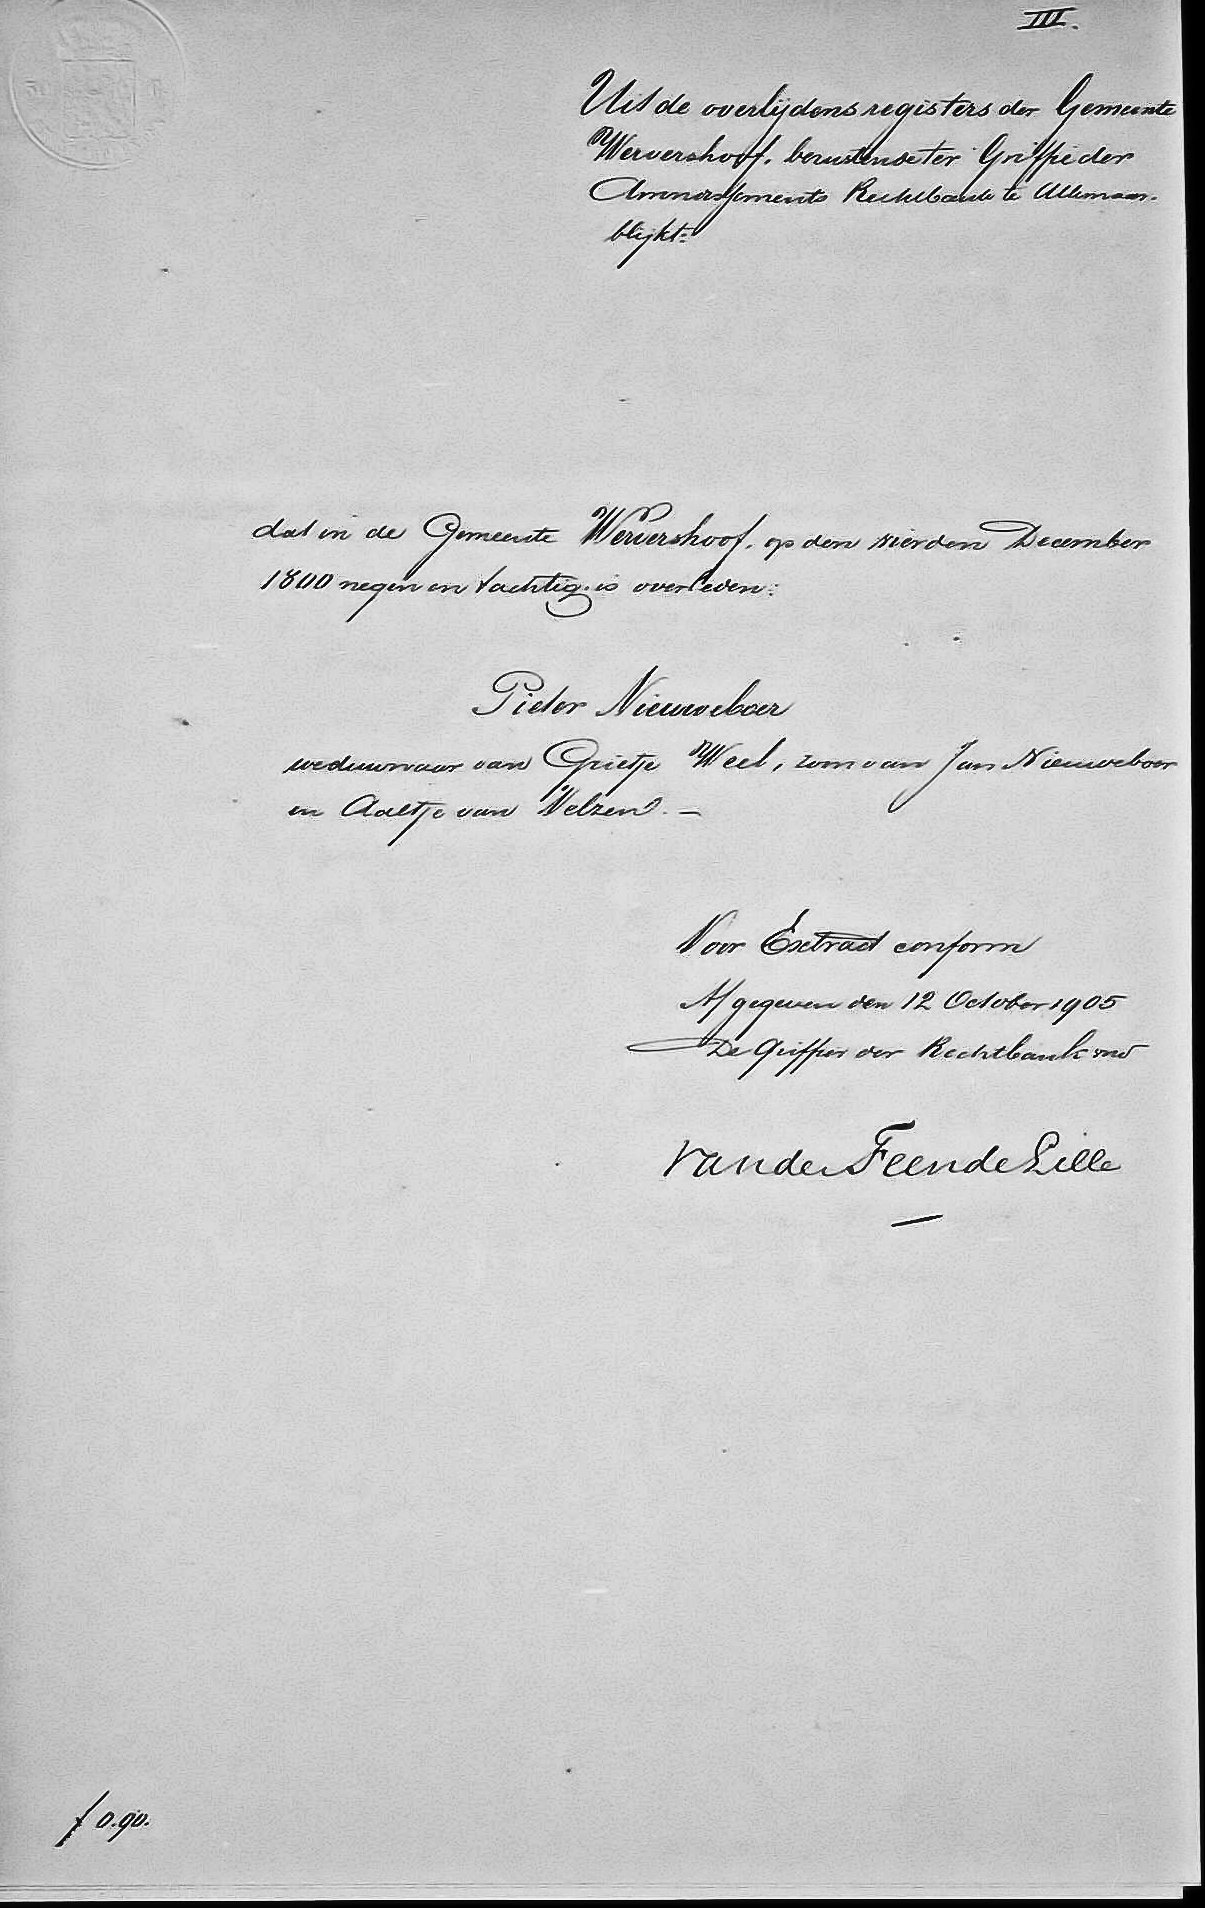 III.
Uit de overlijdensregisters der Gemeente
Wervershoof, berustende ter Griffie der
Arrondissements Rechtbank te Alkmaar.
blijkt:
dat in de Gemeente Wervershoof, op den vierden December
1800 negen en tachtig is overleden:
Pieter Nieuweboer
weduwnaar van Grietje Weel, zoon van Jan Nieuweboer
en Aaltje van Velzen. —
Voor Extract conform
Afgegeven den 12 October 1905
De Griffier der Rechtbank vnd
van der Feen de Lille
f 0.90.